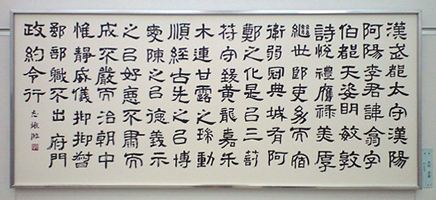 漢武都太守漢陽
阿陽李君諱翕字
伯都天姿明敏敦
詩悅禮膺祿美厚
繼世郎吏幼而宿
衛弱冠典城有阿
鄭之化是以三莂
符守致黃龍嘉禾
木連甘露之瑞動
順經古先之以博
愛陳之以德義示
之以好惡不肅而
成不嚴而治朝中
惟靜威儀抑抑督
郵部職不出府門
政約令行